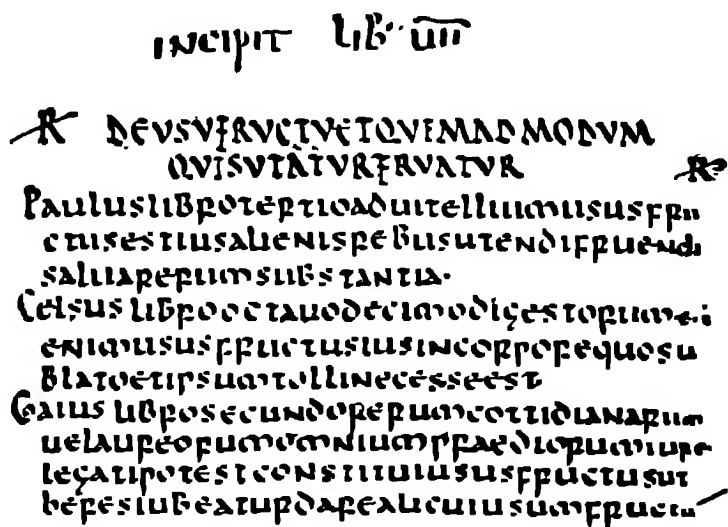 INCIPIT LIB· VII
R DEUSUFRUCTUETQUEMADMODUM
QUISUTATURFRUATUR R
PAULUSLIBROTERTIOADUITELLIUMUSUSFRU
CTUSESTIUSALIENISREBUSUTENDIFRUENDI
SALUARERUMSUBSTANTIA·
CELSUSLIBROOCTAUODECIMODIGESTORUM
ENIMUSUSFRUCTUSIUSINCORPOREQUOSU
BLATOETIPSUMTOLLINECESSEEST
GAIUSLIBROSECUNDORERUMCOTTIDIANARUM
UELAUREORUMOMNIUMPRAEDIORUMIURE
LEGATIPOTESTCONSTITUIUSUSFRUCTUSUT
HERESIUBEATURDAREALICUIUSUMFRUCTU